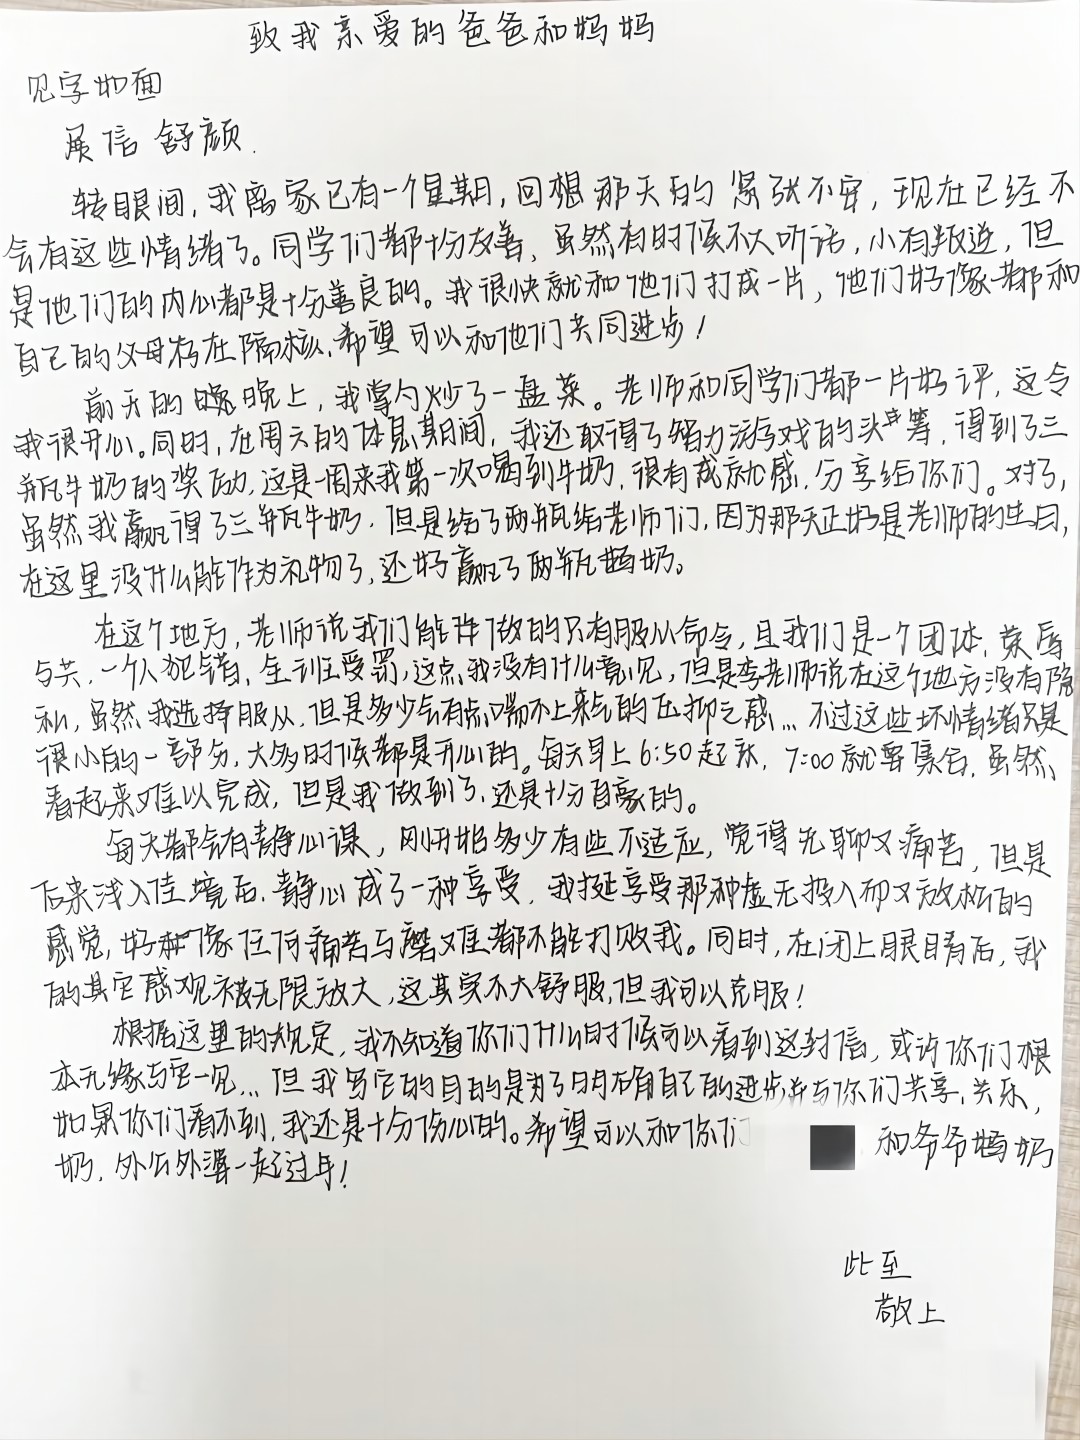 致我亲爱的爸爸和妈妈
见字如面
展信舒颜.
转眼间,我离家已有一个星期,回想那天的紧张不安,现在已经不
会有这些情绪了。同学们都十分友善,虽然有时候不大听话,小有叛逆,但
是他们的内心都是十分善良的。我很快就和他们打成一片,他们好像都和
自己的父母存在隔核,希望可以和他们共同进步!
前天的晚上,我掌勺炒了一盘菜。老师和同学们都一片好评,这令
我很开心。同时,在周六的休息期间,我还取得了智力游戏的头筹,得到了三
瓶牛奶的奖励,这是一周来我第一次喝到牛奶,很有成就感,分享给你们。对了,
虽然我赢得了三瓶牛奶,但是给了两瓶给老师们,因为那天正好是老师的生日,
在这里没什么能作为礼物了,还好赢了两瓶奶。
在这个地方,老师说我们能做的只有服从命令,且我们是一个团体,荣辱
与共,一个人犯错,全班受罚,这点我没有什么意见,但是李老师说在这个地方没有隐
私,虽然我选择服从,但是多少会有点喘不上来气的压抑之感...不过这些坏情绪只是
很小的一部分,大多时候都是开心的。每天早上6:50起床,7:00就要集合,虽然
看起来难以完成,但是我做到了,还是十分自豪的。
每天都会有静心课,刚开始多少有些不适应,觉得无聊又痛苦,但是
后来浅入佳境后,静心成了一种享受,我挺享受那种虚无投入而又放松的
感觉,好像任何痛苦与磨难都不能打败我。同时,在闭上眼睛后,我
的其它感观被无限放大,这其实不大舒服,但我可以克服!
根据这里的规定,我不知道你们什么时候可以看到这封信,或许你们根
本无缘与它一见...但我写它的目的是为了明确自己的进步并与你们共享,共乐,
如果你们看不到,我还是十分伤心的。希望可以和你们 和爷爷奶
奶,外公外婆一起过年!
此至
敬上